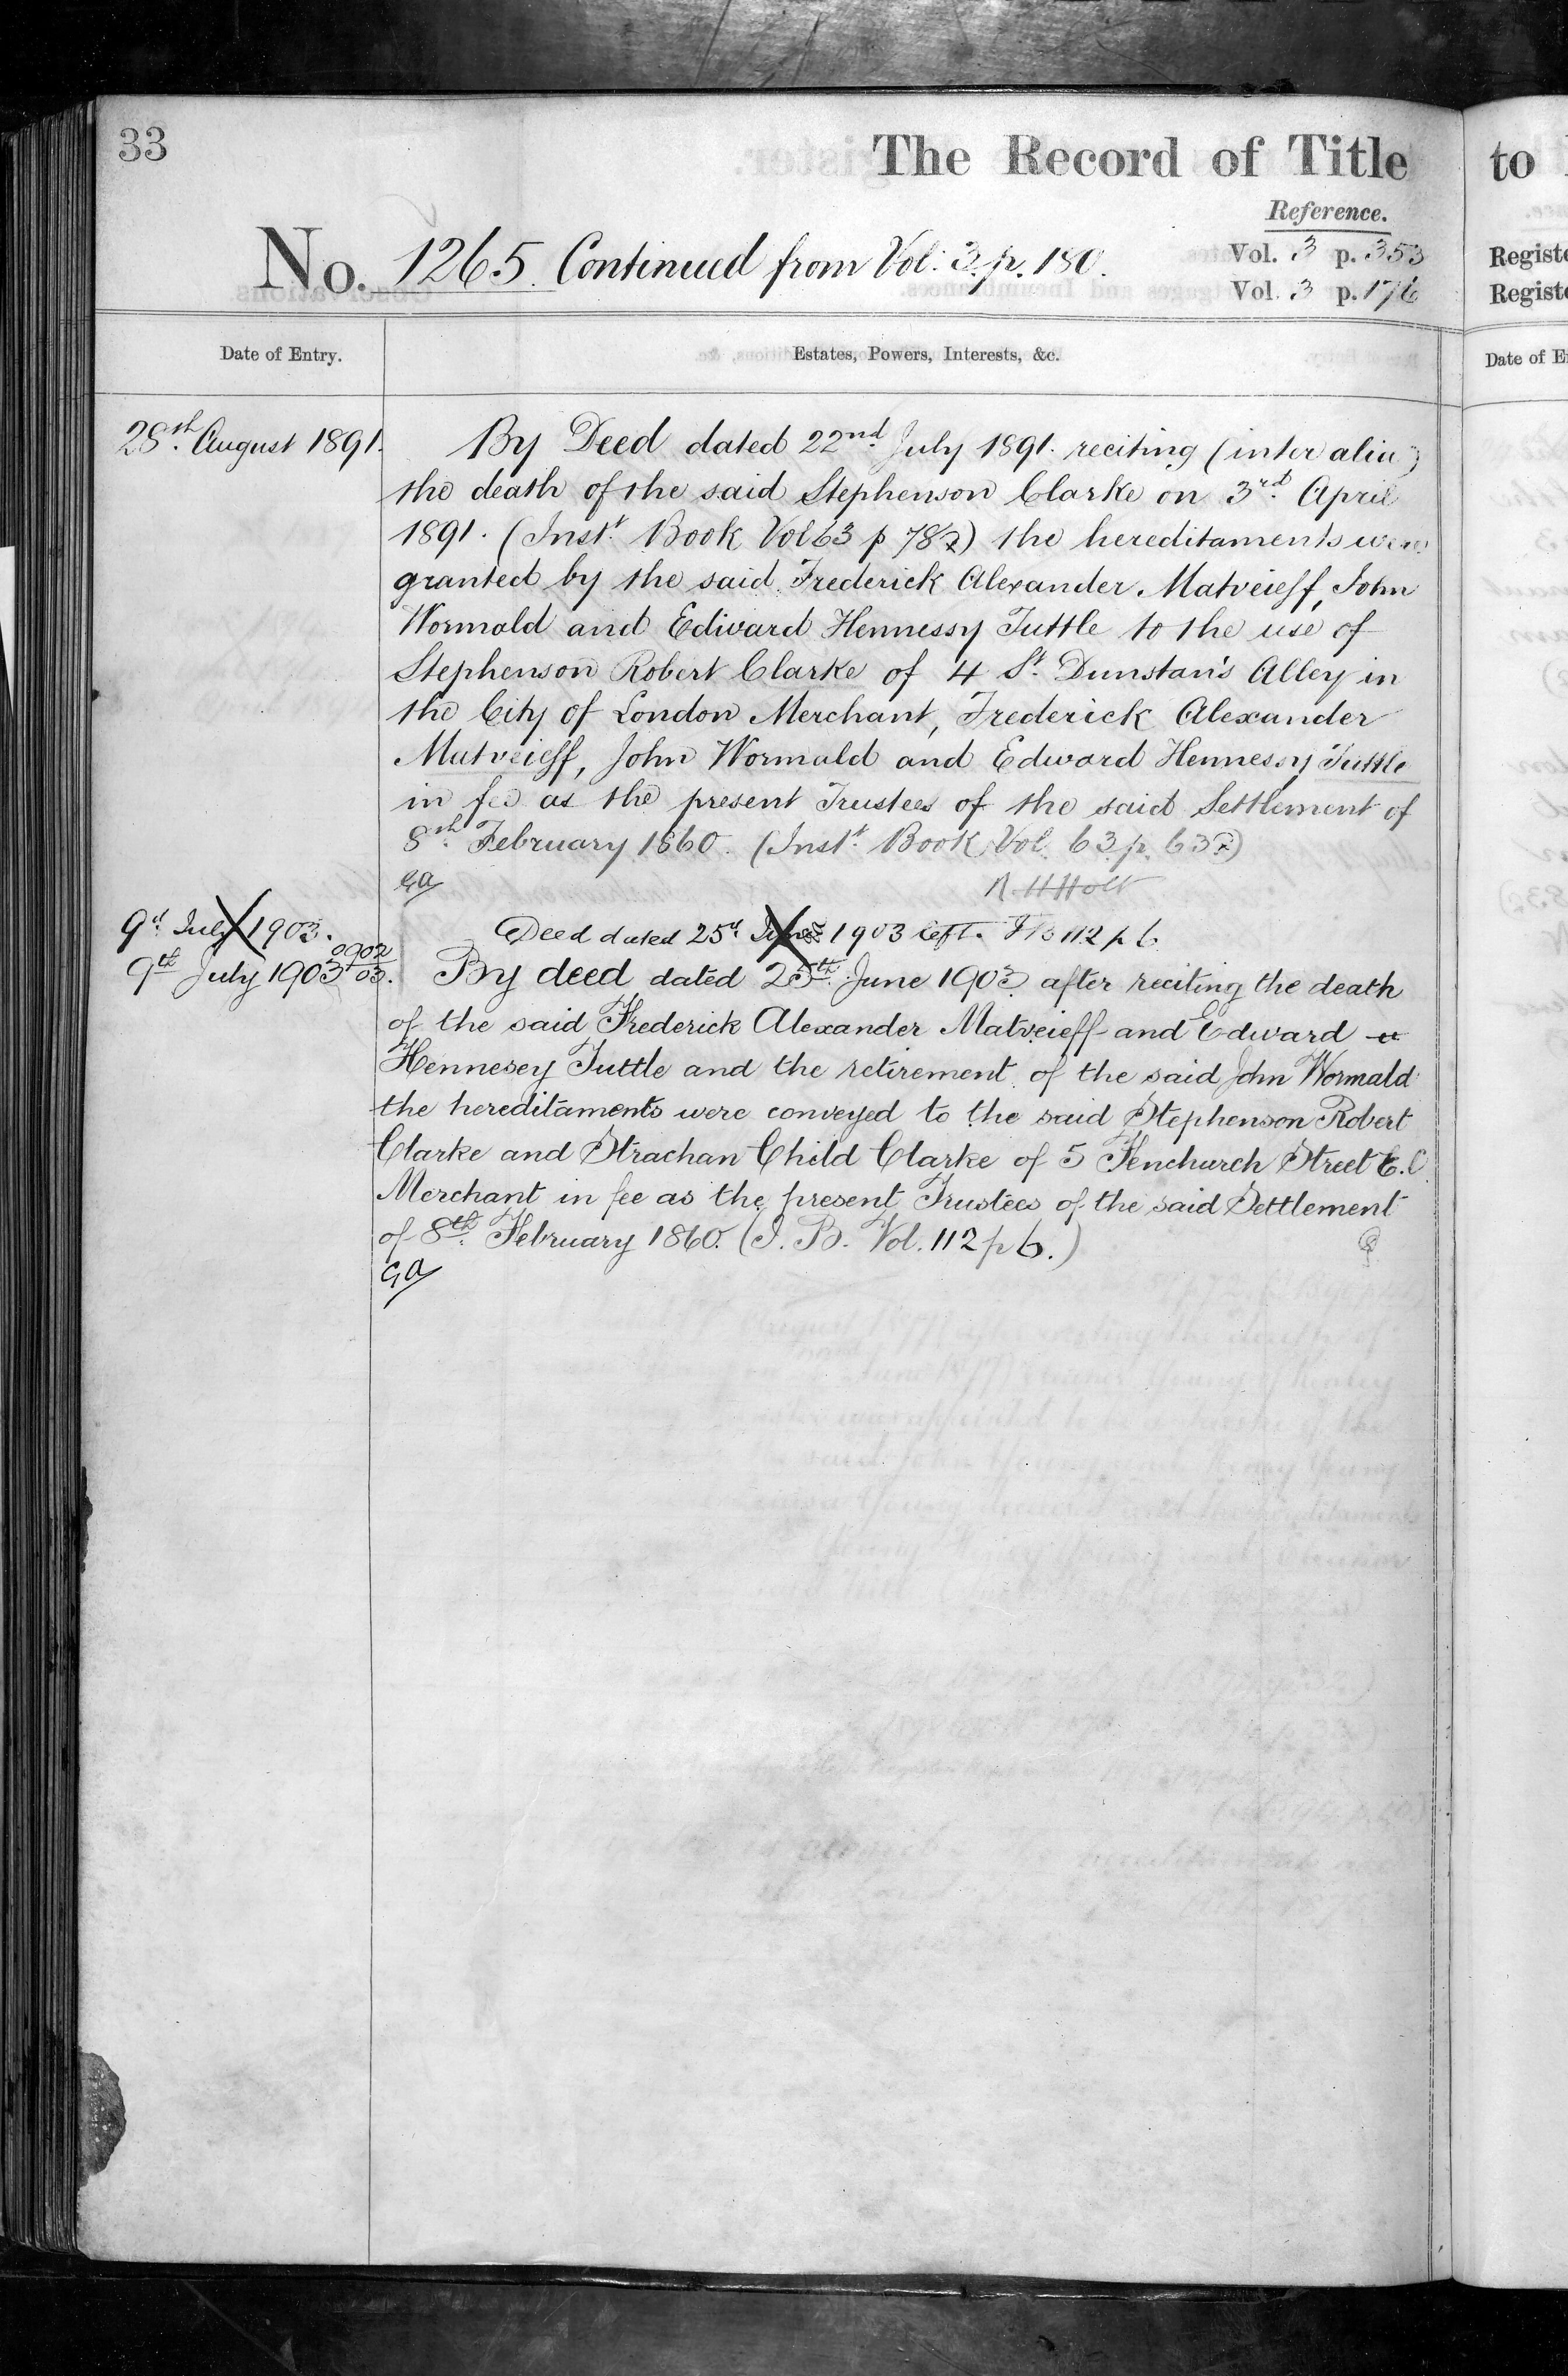 33
The Record of Title
Reference.
No. 1265. Continued from Vol. 3. p. 180.
Vol. 3 p. 353
Vol. 3 p. 176
Date of Entry.
Estates, Powers, Interests, &c.
28th August 1891.
By Deed dated 22nd July 1891. reciting (inter alia)
the death of the said Stephenson Clarke on 3rd April
1891. (Inst. Book Vol 63 p 782) the hereditaments were
granted by the said Frederick Alexander Matveieff, John
Wormald and Edward Hennessy Tuttle to the use of
Stephenson Robert Clarke of 4 St. Dunstan's Alley in
the City of London Merchant, Frederick Alexander
Matveieff, John Wormald and Edward Hennessy Tuttle
in fee as the present Trustees of the said Settlement of
8th February 1860. (Inst. Book Vol. 63. p. 63)
GA
9th July 1903.
Deed dated 25th June 1903 left. 112 p 6
9th July 1903 0902/03.
By deed dated 25th June 1903 after reciting the death
of the said Frederick Alexander Matveieff and Edward
Hennesey Tuttle and the retirement of the said John Wormald
the hereditaments were conveyed to the said Stephenson Robert
Clarke and Strachan Child Clarke of 5 Fenchurch Street E.C
Merchant in fee as the present Trustees of the said Settlement
of 8th February 1860. (I. B. Vol. 112 p 6.)
GA
to
Registe
Registe
Date of E